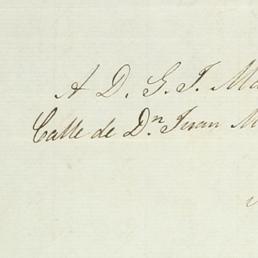 A D. G. J. Ma
Calle de Dn Juan M